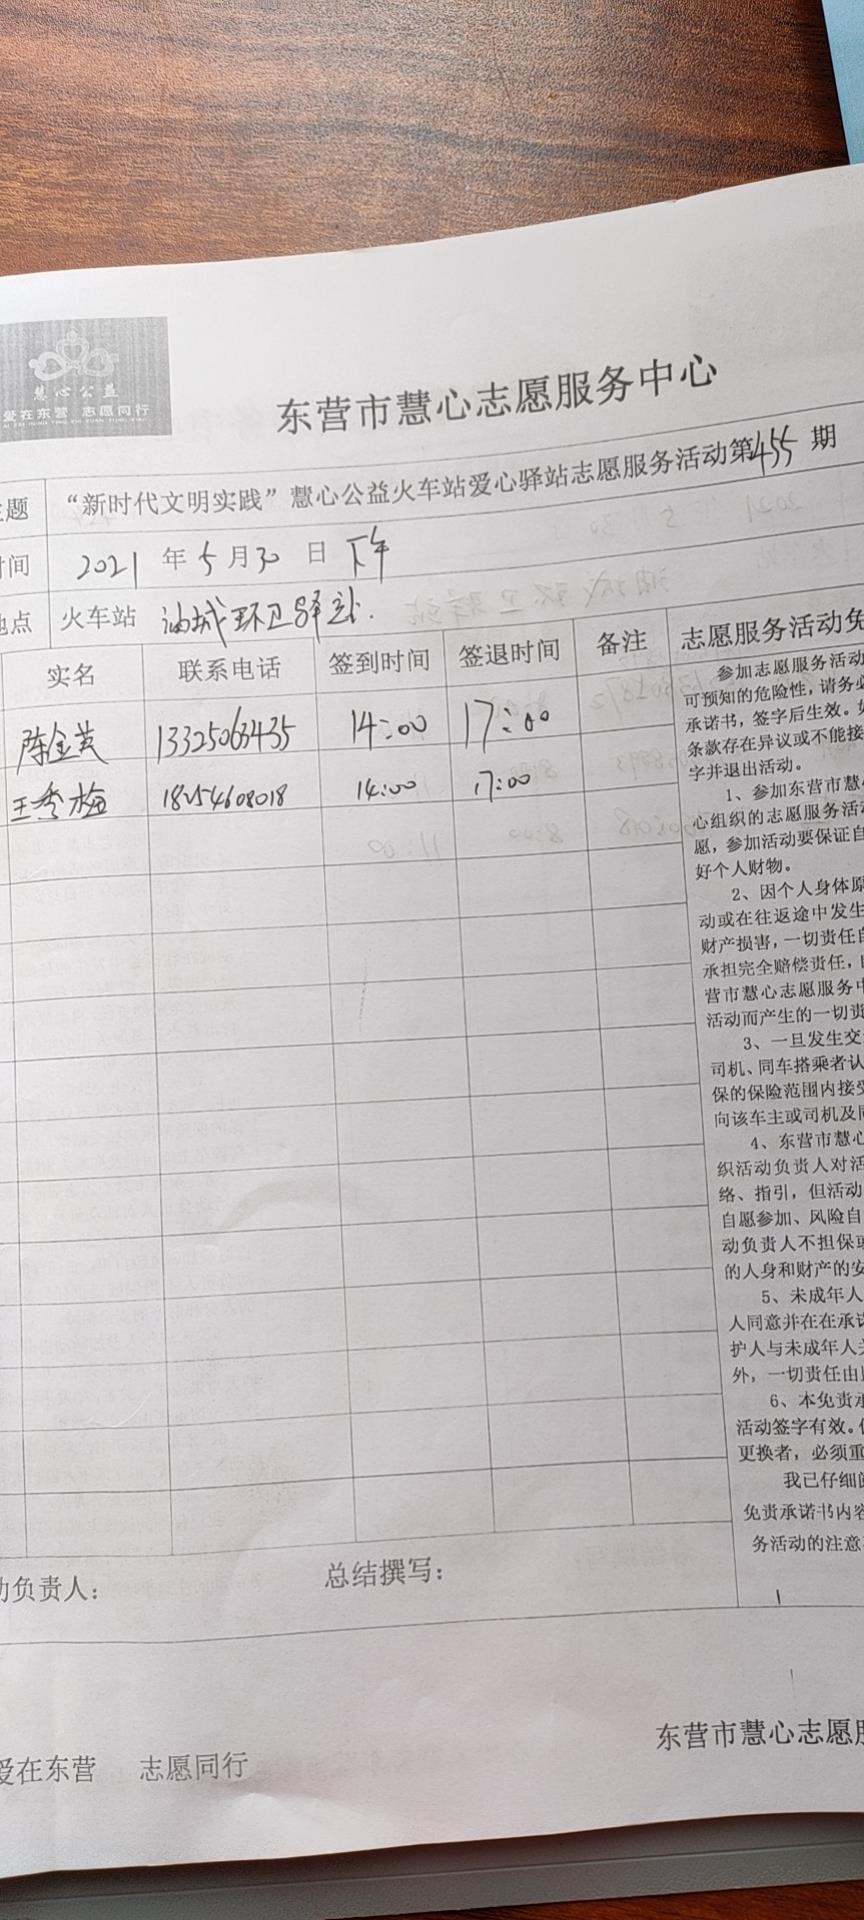 慧心公益
爱在东营 志愿同行
东营市慧心志愿服务中心
主题 “新时代文明实践”慧心公益火车站爱心驿站志愿服务活动第455期
时间 2021年5月30日下午
地点 火车站 油城环卫驿站.
实名 联系电话 签到时间 签退时间 备注 志愿服务活动免
陈金英 13325063435 14:00 17:00
王秀梅 18254608018 14:00 17:00
参加志愿服务活动
可预知的危险性，请务必
承诺书，签字后生效。如
条款存在异议或不能接
字并退出活动。
1、参加东营市慧心
心组织的志愿服务活动
愿，参加活动要保证自
好个人财物。
2、因个人身体原
动或在往返途中发生
财产损害，一切责任自
承担完全赔偿责任，
营市慧心志愿服务中
活动而产生的一切责
3、一旦发生交
司机、同车搭乘者认
保的保险范围内接受
向该车主或司机及同
4、东营市慧心
织活动负责人对活
络、指引，但活动
自愿参加、风险自
动负责人不担保或
的人身和财产的安
5、未成年人
人同意并在在承诺
护人与未成年人
外，一切责任由
6、本免责承
活动签字有效。
更换者，必须重
我已仔细阅
免责承诺书内容
务活动的注意
动负责人： 总结撰写：
爱在东营 志愿同行
东营市慧心志愿服